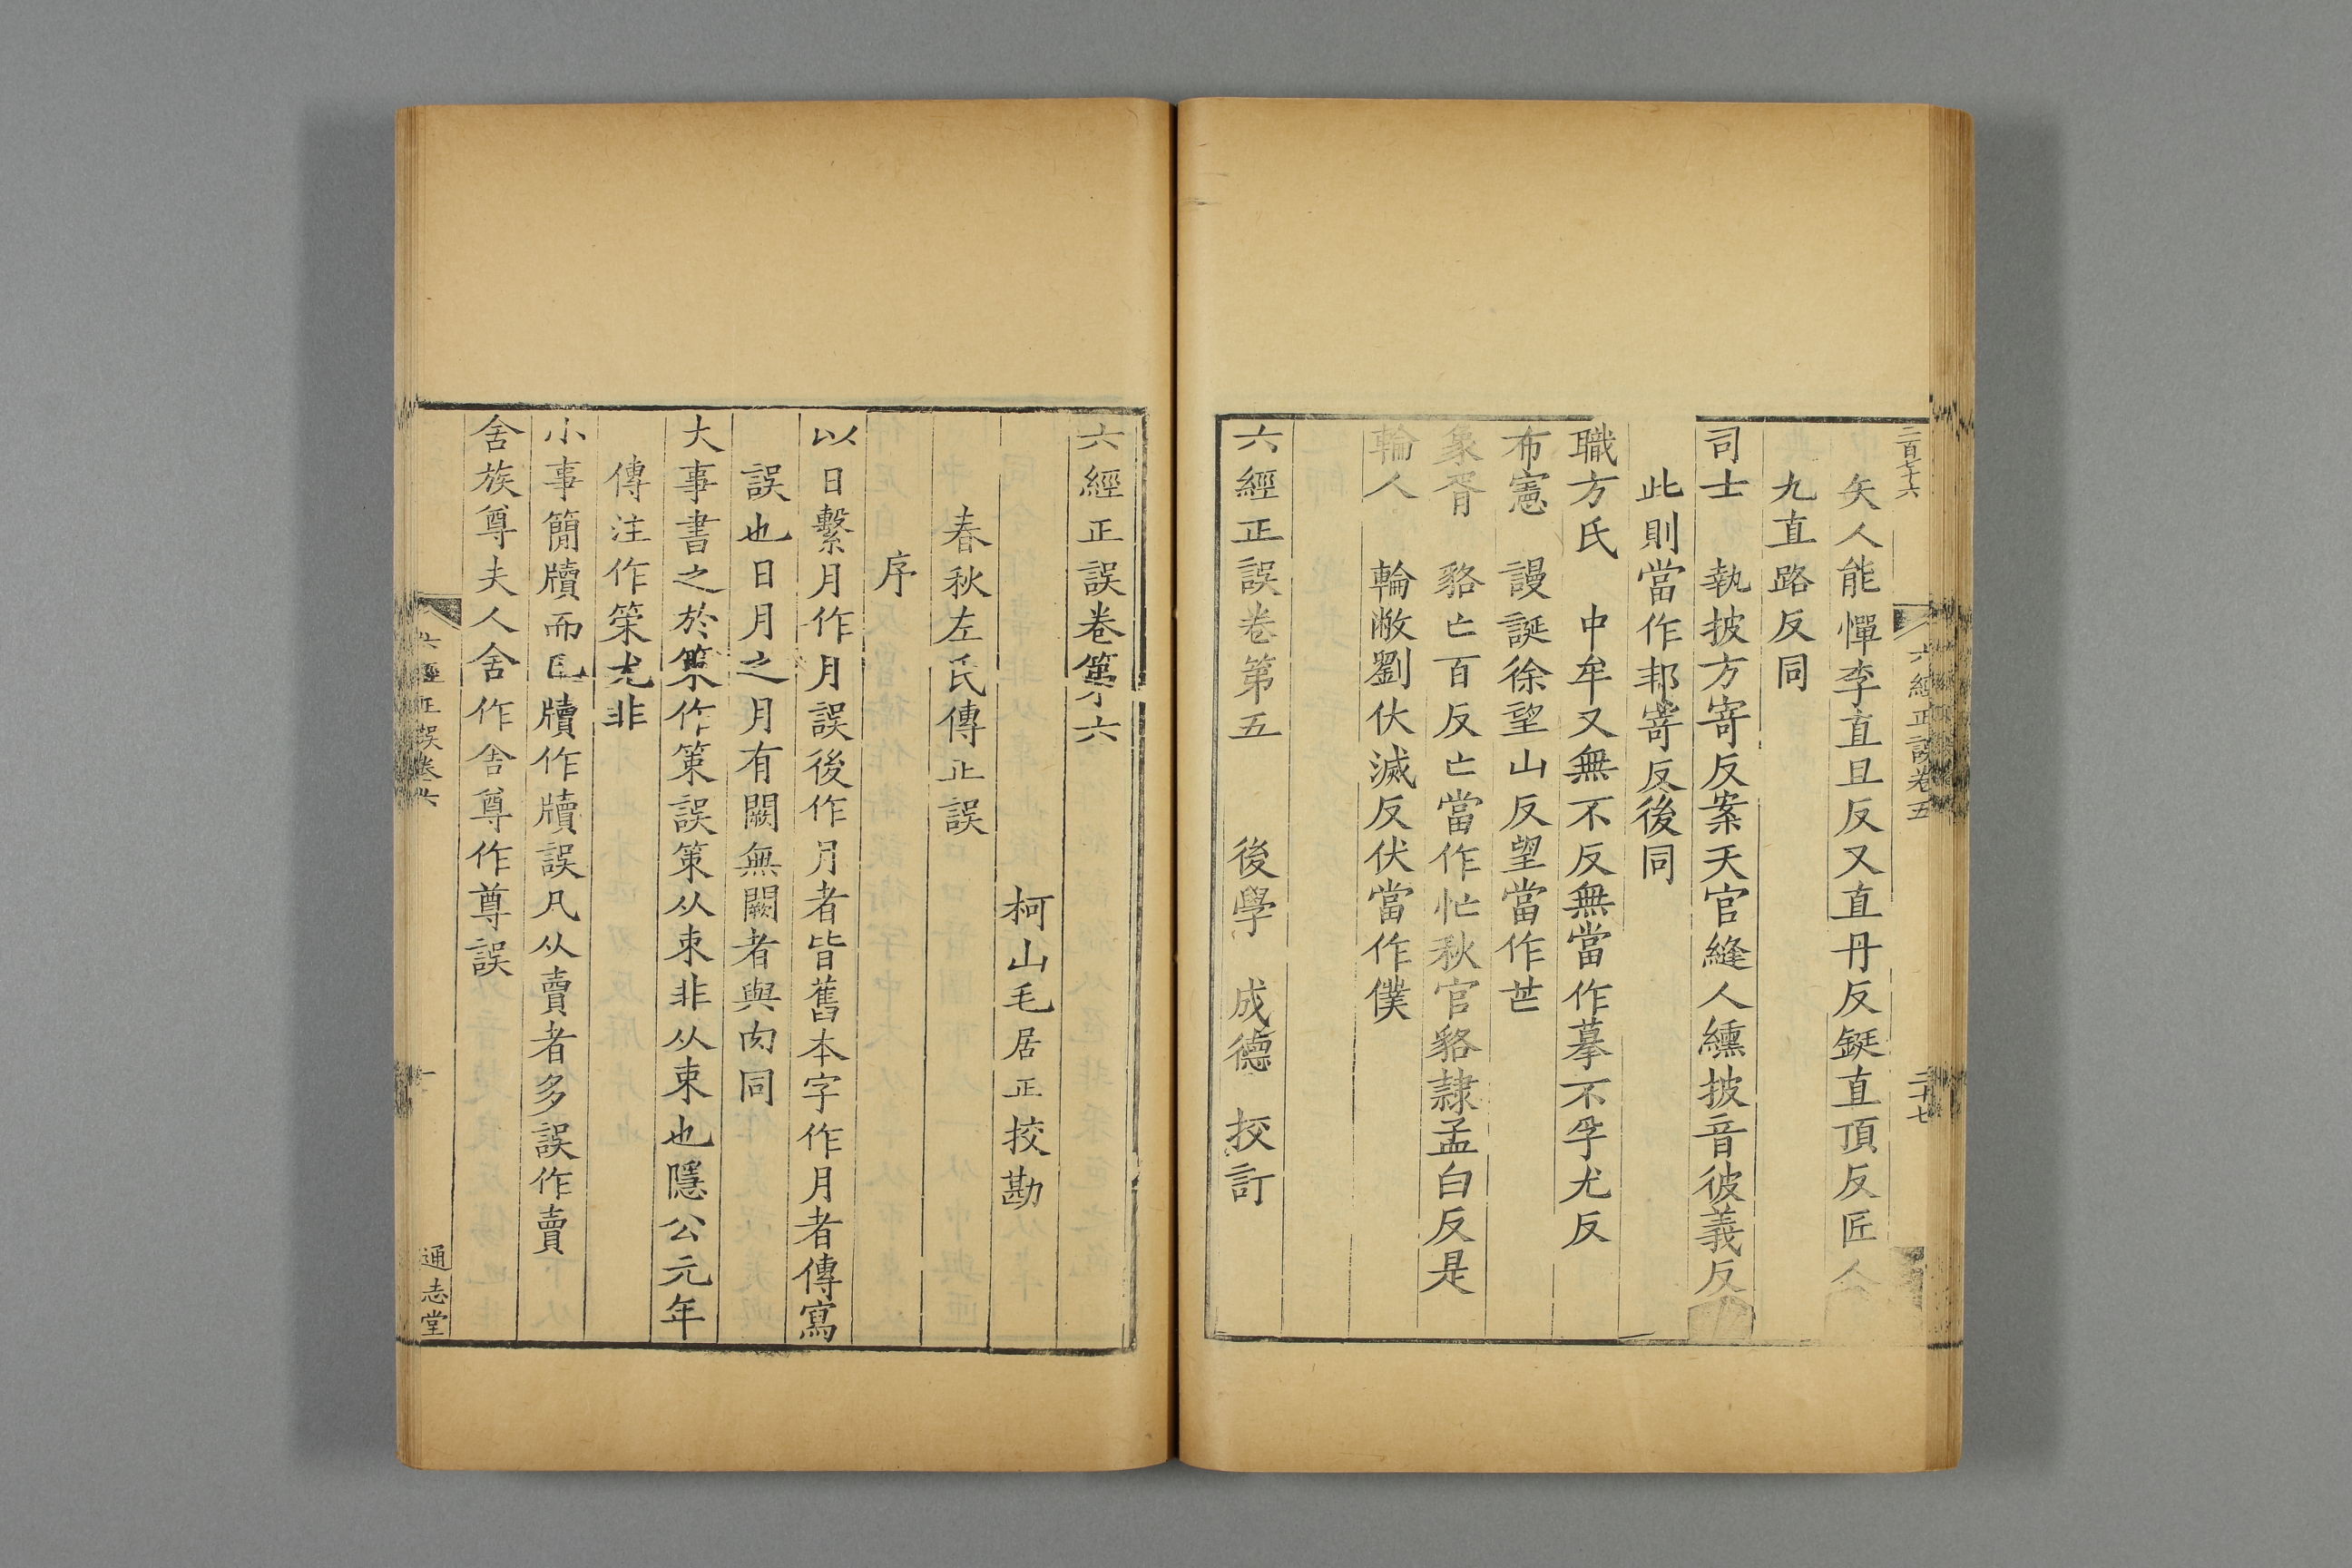 二百七十六
六經正誤卷五
二十七
矢人能憚李直旦反又直丹反鋌直頂反匠人
九直路反同
司士　執披方寄反案天官縫人纁披音彼義反
此則當作邦寄反後同
職方氏　中牟又無不反無當作摹不孚尤反
布憲　謾誕徐望山反望當作芒
象胥　貉亡百反亡當作忙秋官貉隸孟白反是
輪人　輪敝劉伏滅反伏當作僕
六經正誤卷第五　後學　成德　挍訂
六經正誤卷第六
柯山毛居正挍勘
春秋左氏傳正誤
序
以日繫月作月誤後作月者皆舊本字作月者傳寫
誤也日月之月有闕無闕者與肉同
大事書之於策作策誤策从朿非从束也隱公元年
傳注作筞尤非
小事簡牘而已牘作牘誤凡从賣者多誤作賣
舍族尊夫人舍作舎尊作尊誤
六經正誤卷六
一
通志堂